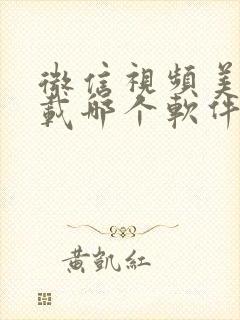 微信視頻美
載哪个軟件
黃凱紅